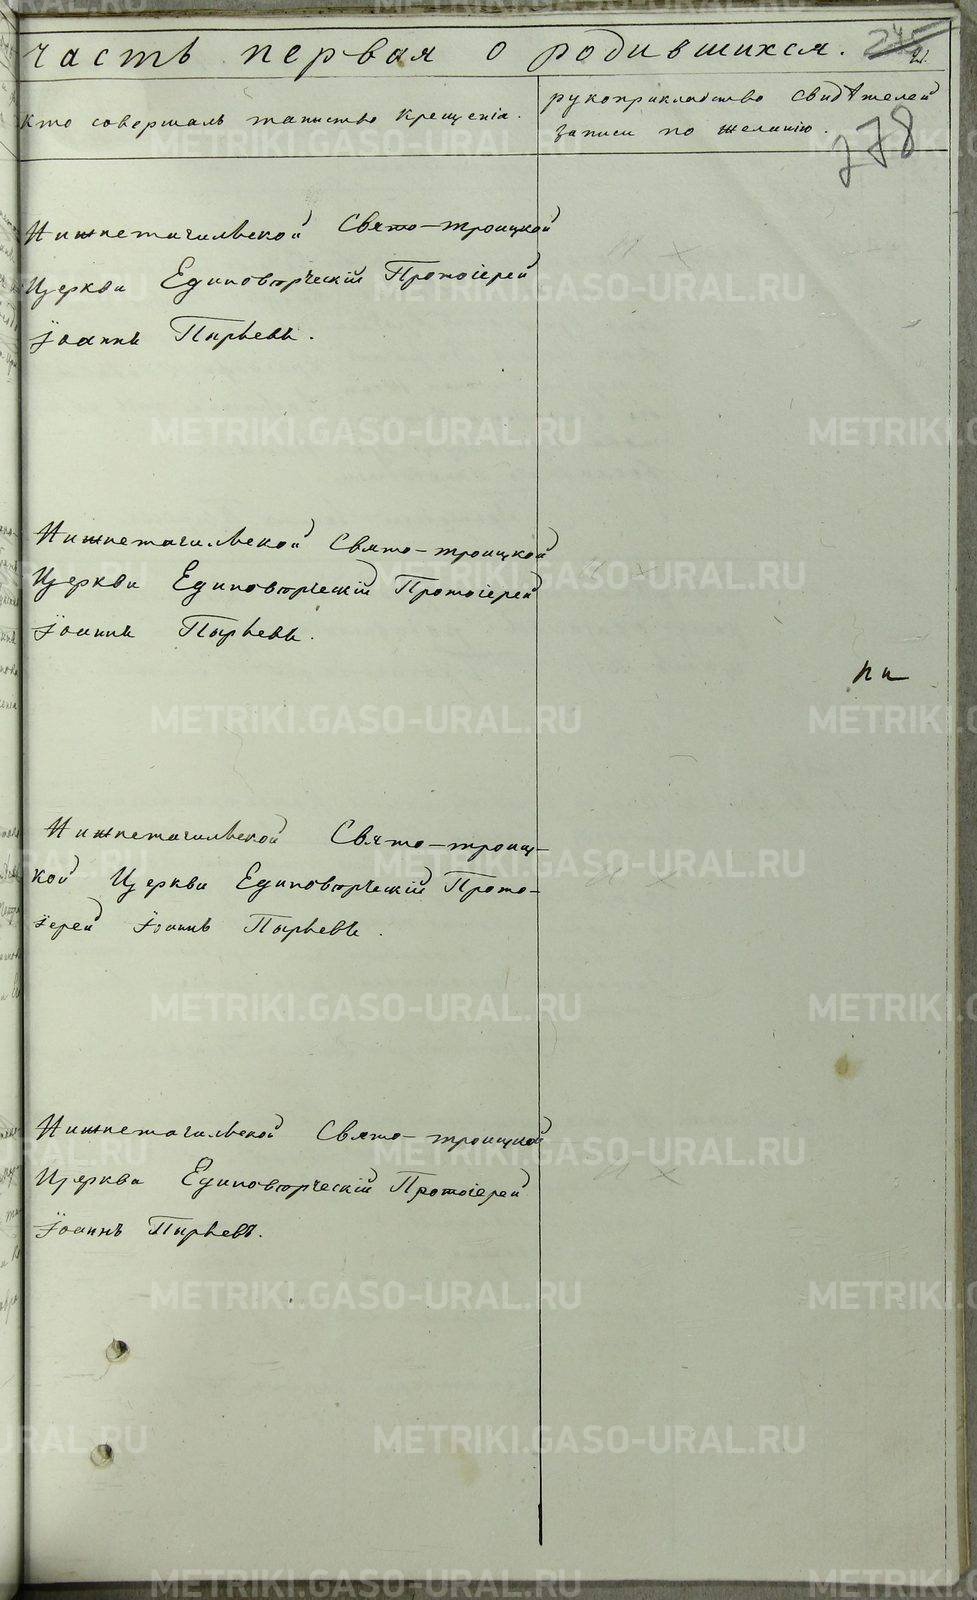 часть первая о родившихся. 245
21.
кто совершалъ таинство крещенія.
рукоприкладство свидѣтелей
записи по желанію.
278
Нижнетагильской Свято-троицкой
Церкви Единовѣрческій Протоіерей
Іоаннъ Пырьевъ.
Нижнетагильской Свято-троицкой
Церкви Единовѣрческій Протоіерей
Іоаннъ Пырьевъ.
Нижнетагильской Свято-троиц-
кой Церкви Единовѣрческій Прото-
іерей Іоаннъ Пырьевъ.
Нижнетагильской Свято-троицкой
Церкви Единовѣрческій Протоіерей
Іоаннъ Пырьевъ.
METRIKI.GASO-URAL.RU